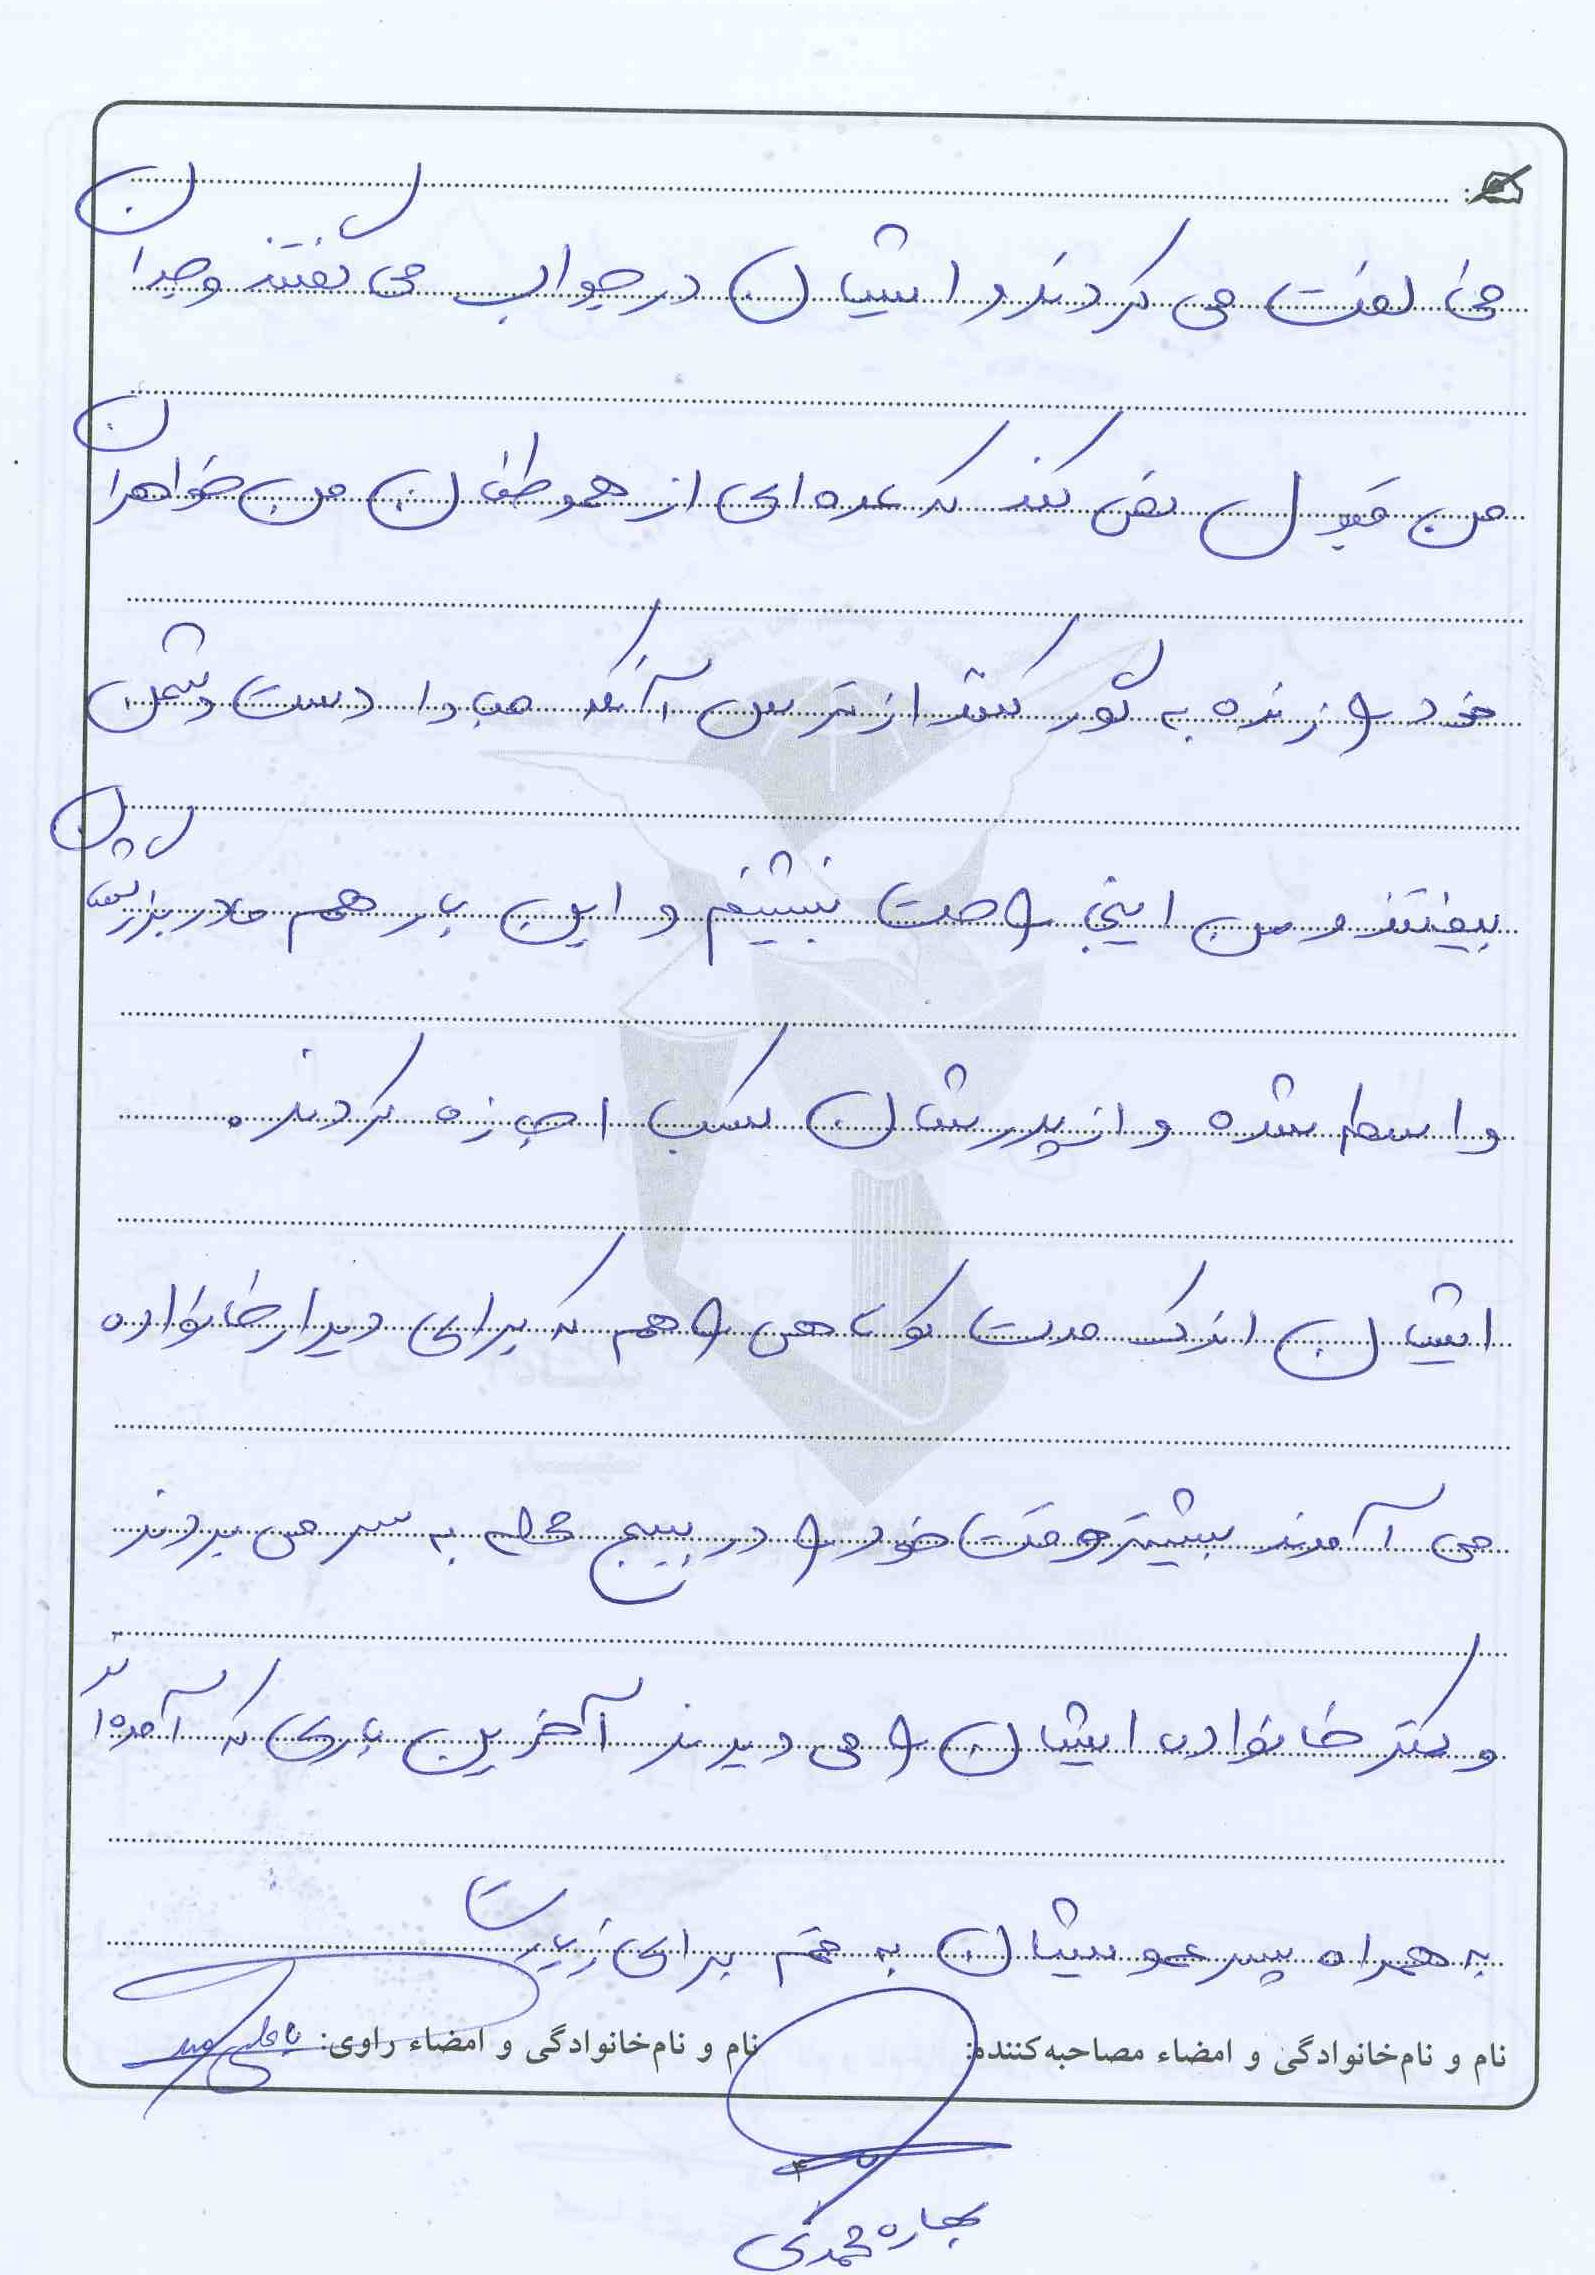 مخالفت می کردند و ایشان در جواب می گفتند وجدان
من قبول نمی کند که عده ای از هموطنان من خواهران
خود را زنده به گور کنند از ترس آنکه مبادا دست دشمن
بیفتند و من اینجا راحت بنشینم و این بار هم مادر بزرگشان
واسطه شده و از پدرشان کسب اجازه کردند.
ایشان اندک مدت کوتاهی را هم که برای دیدار خانواده
می آمدند بیشتر وقت خود را در بسیج محله به سر می بردند
و کمتر خانواده ایشان را می دیدند آخرین باری که آمده اند
به همراه پسر عمویشان به قم برای زیارت
نام و نام‌خانوادگی و امضاء مصاحبه‌کننده:
نام و نام‌خانوادگی و امضاء راوی:
۴
بهاره محمدی